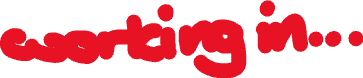 working in...